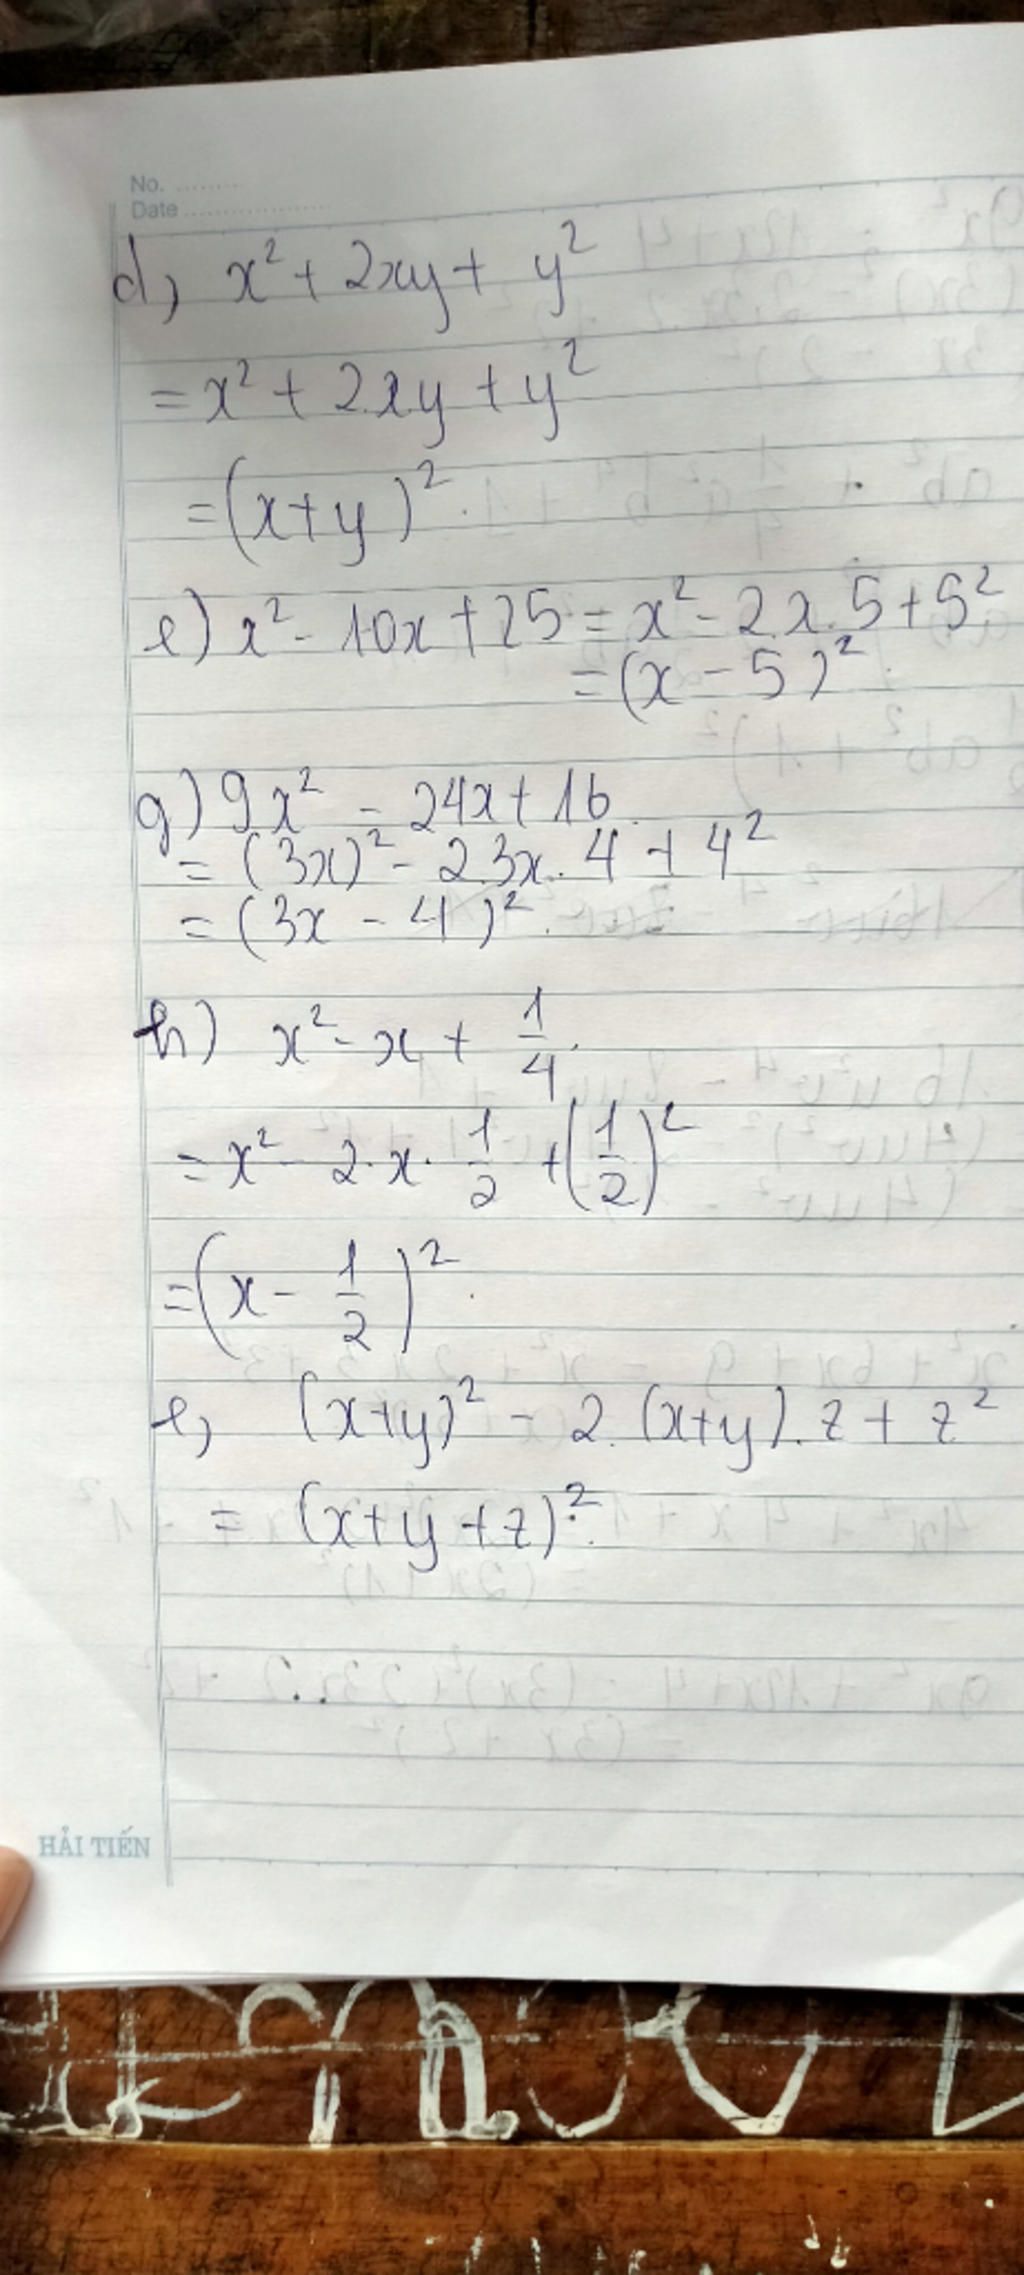 No. ........
Date ..................
d, x² + 2xy + y²
= x² + 2.xy + y²
= (x+y)².
e) x² - 10x + 25 = x² - 2.x.5 + 5²
= (x - 5)².
g) 9x² - 24x + 16.
= (3x)² - 2.3x.4 + 4²
= (3x - 4)².
h) x² - x + 1/4.
= x² - 2.x.1/2 + (1/2)²
= (x - 1/2)².
e, (x+y)² - 2.(x+y).z + z²
= (x+y+z)².
HẢI TIẾN